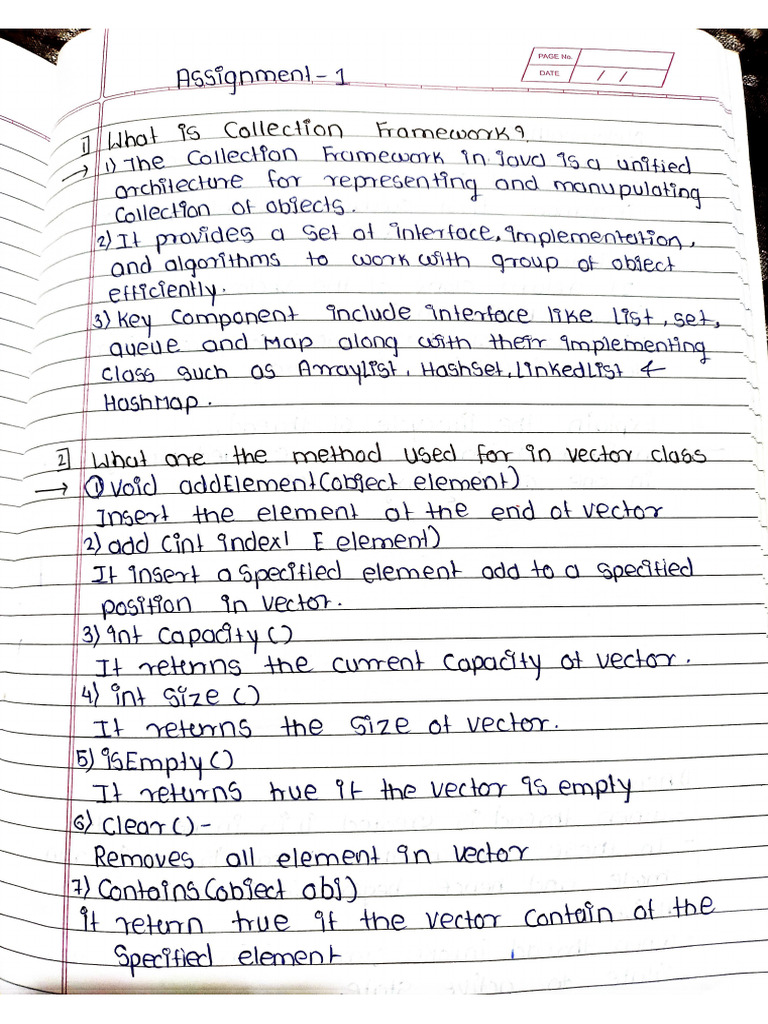 Assignment - 1
PAGE No.
DATE / /
1] What is Collection Framework?
→ 1) The Collection Framework in java is a unified
architecture for representing and manupulating
Collection of objects.
2) It provides a set of interface, implementation,
and algorithms to work with group of object
efficiently.
3) Key Component include interface like list, set,
queue and Map along with their implementing
class such as ArrayList, HashSet, LinkedList &
HashMap.
2] What are the method used for in vector class
→ ① void addElement(object element)
Insert the element at the end of vector
2) add (int index| E element)
It insert a specified element add to a specified
position in vector.
3) int capacity()
It retenns the current capacity of vector.
4) int size ()
It reterns the size of vector.
5) isEmpty()
It returns true if the vector is empty
6) Clear() -
Removes all element in vector
7) Contains(object obj)
it retern true if the vector contain of the
specified element